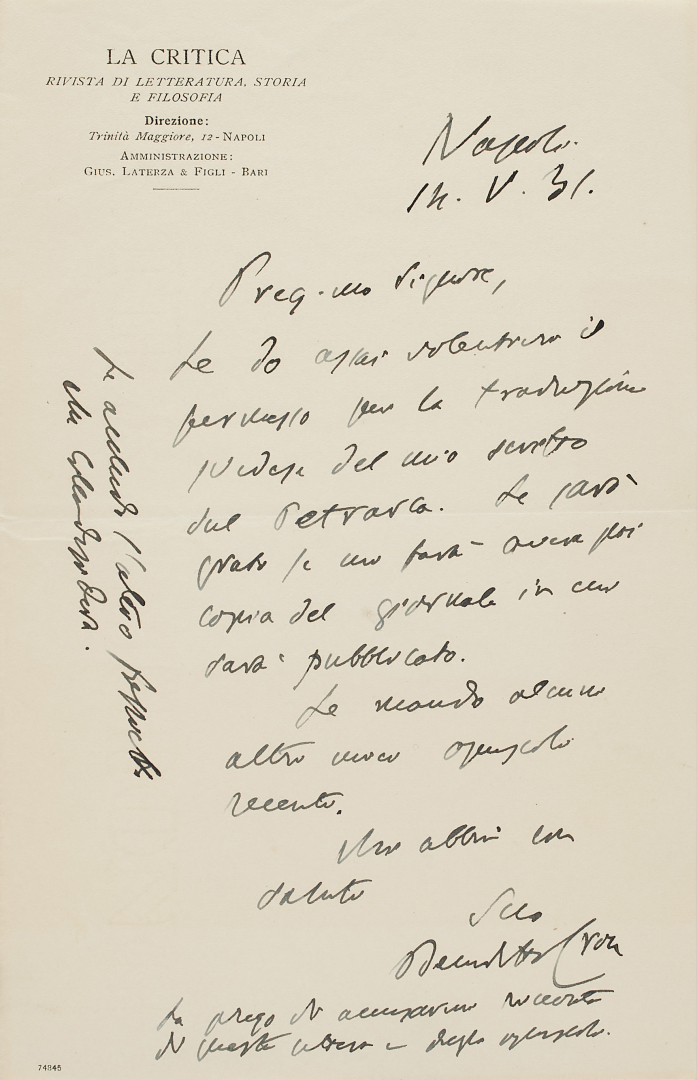 LA CRITICA
RIVISTA DI LETTERATURA, STORIA
E FILOSOFIA
Direzione:
Trinità Maggiore, 12 - NAPOLI
AMMINISTRAZIONE:
GIUS. LATERZA & FIGLI - BARI
Napoli
14. V. 31.
Preg.mo Signore,
Le do assai volentieri il
permesso per la traduzione
svedese del mio scritto
sul Petrarca. Le sarò
grato se mi farà avere poi
copia del giornale in cui
sarà pubblicato.
Le mando alcuni
altri miei opuscoli
recenti.
Mi abbia con
saluti
Suo
Benedetto Croce
La prego di accusarmi ricevuta
di questa lettera e degli opuscoli.
Le accludo l'altro
che
74845